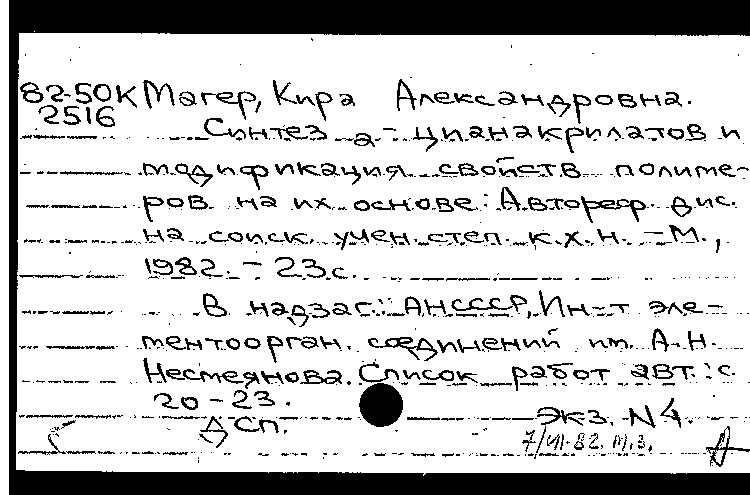 82-50К Магер, Кира Александровна.
2516
Синтез a-цианакрилатов и
модификация свойств полиме-
ров на их основе: Автореф. дис.
на соиск. учен. степ. к.х.н. - М.,
1982. - 23с.
В надзаг.: АНСССР, Ин-т эле-
ментоорган. соединений им. А.Н.
Несмеянова. Список работ авт.: с.
20-23.
ДСП. Экз. N4.
7/VII-82. М.З.